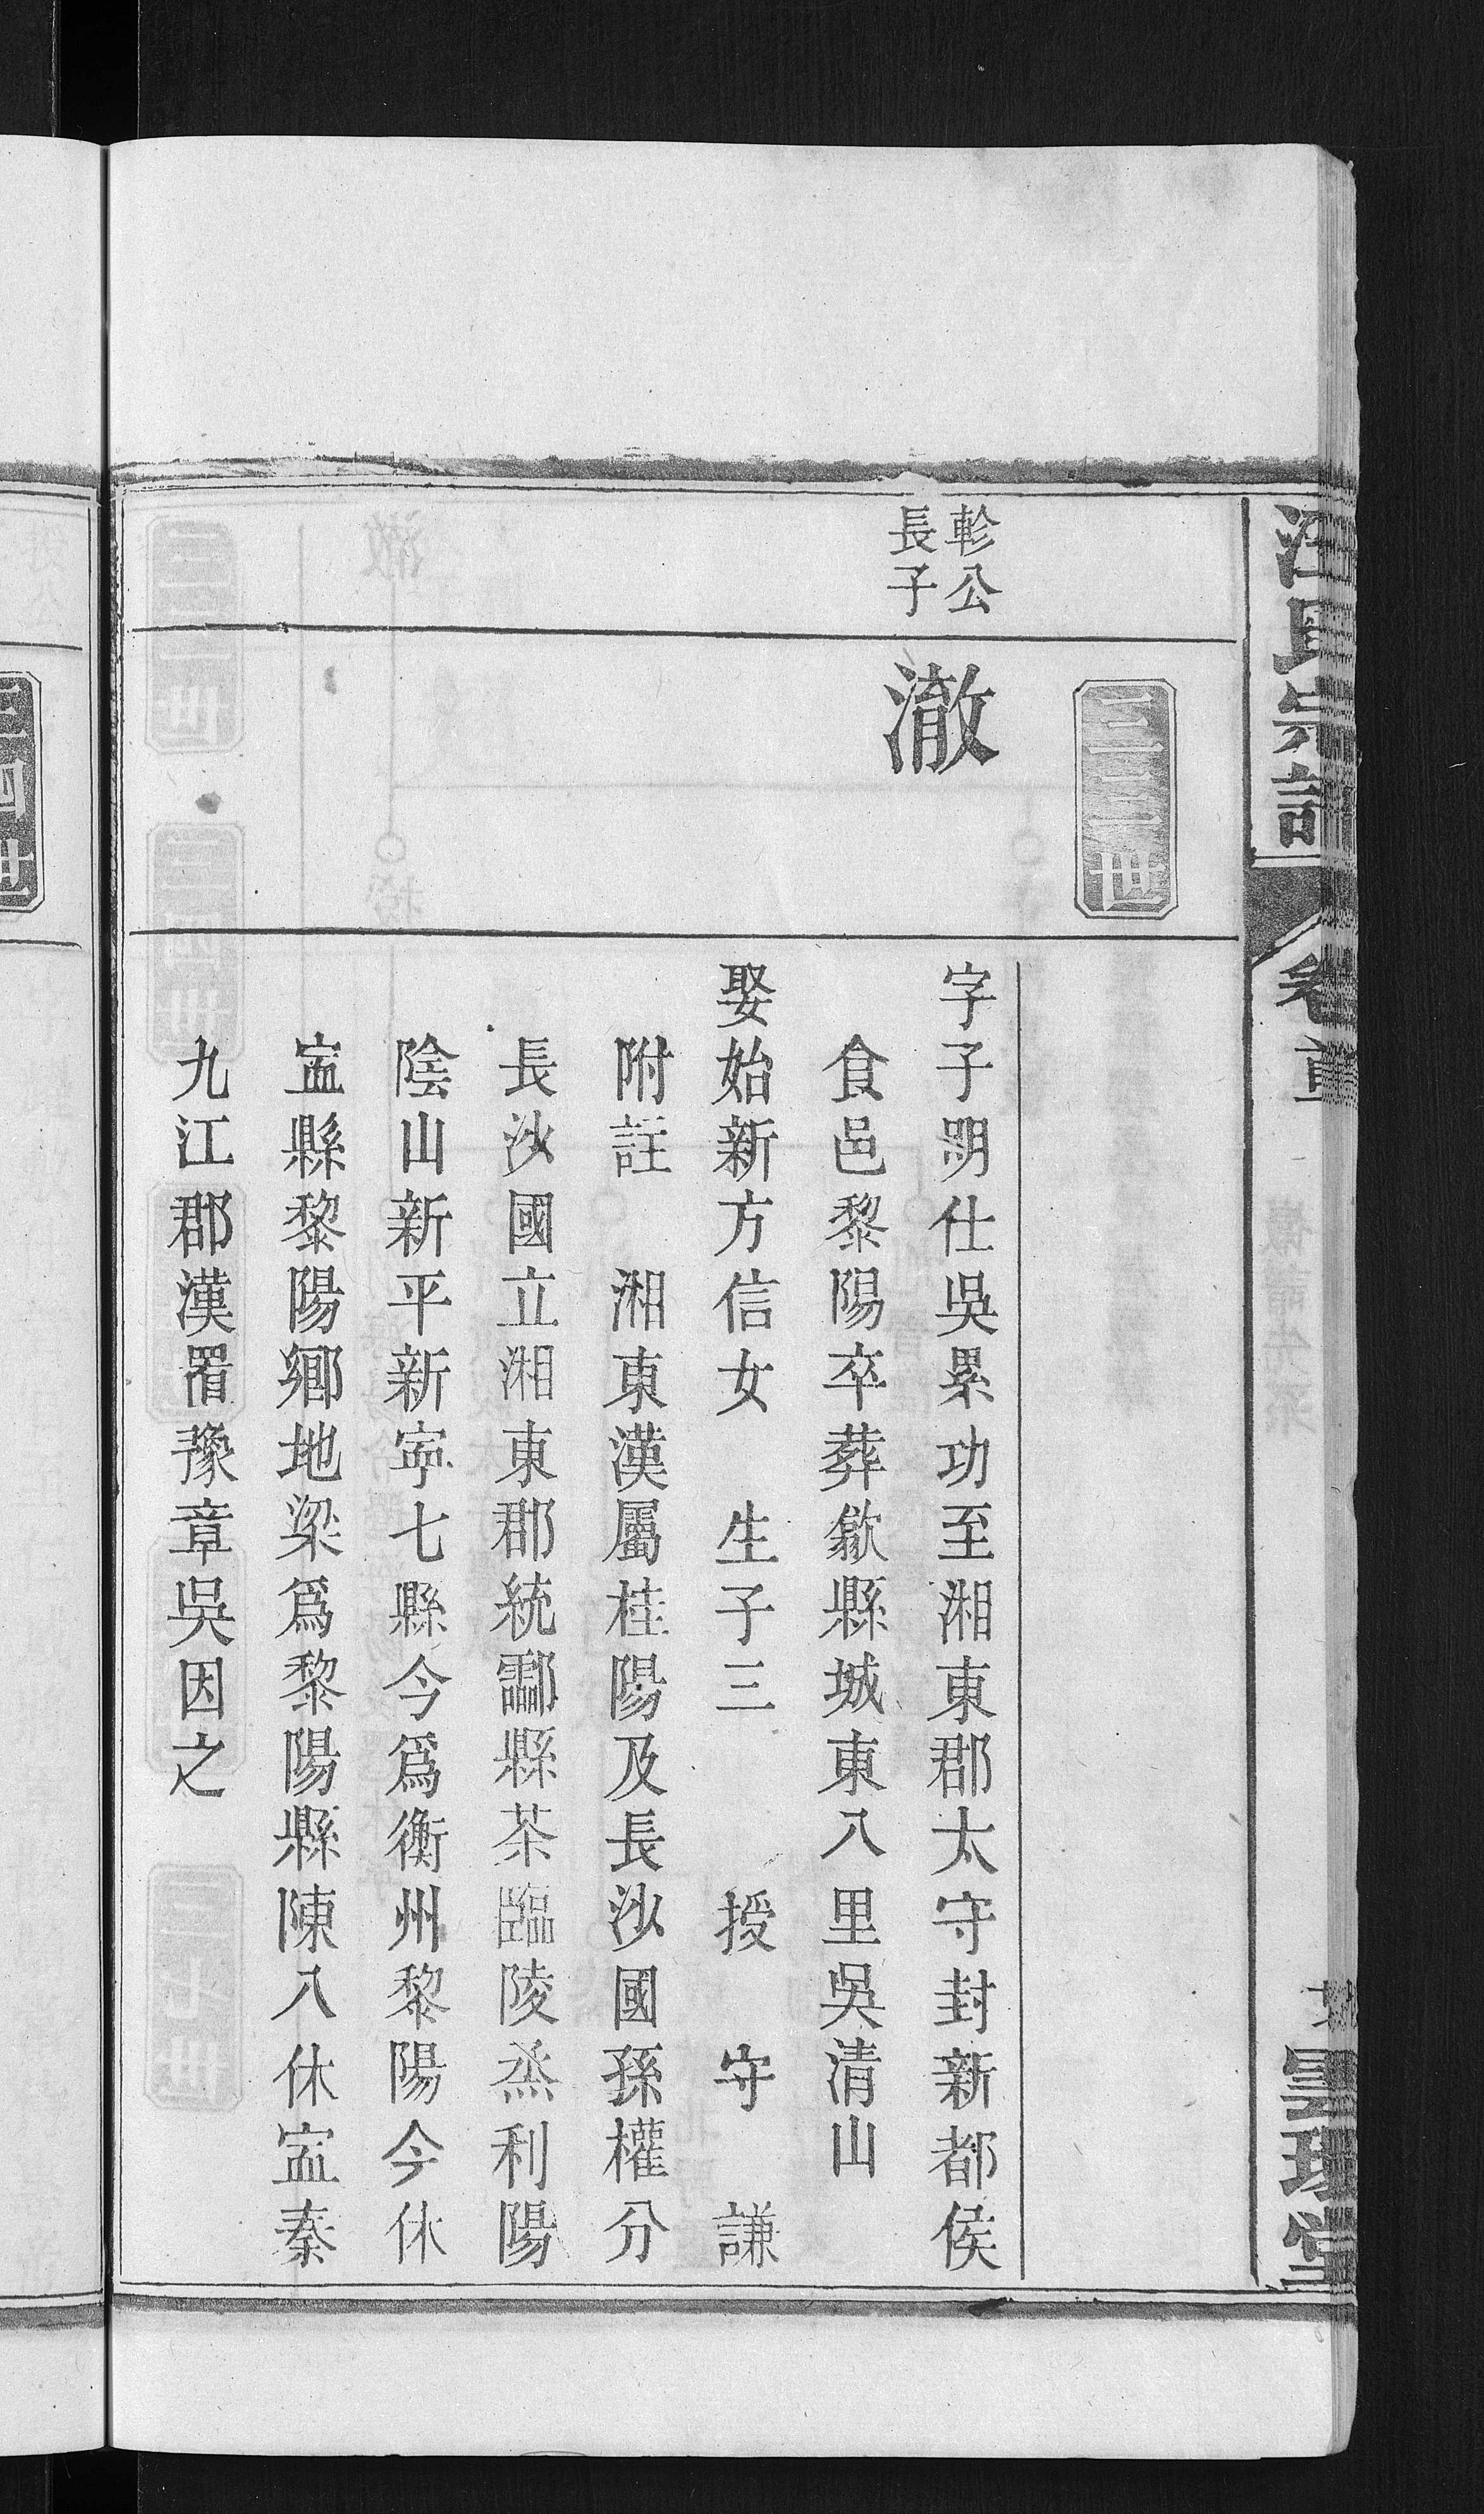 汪氏宗譜
卷首
三三世
軫公
長子
澈
字子明仕吳累功至湘東郡太守封新都侯
食邑黎陽卒葬歙縣城東八里吳清山
娶始新方信女 生子三 授 守 謙
附註 湘東漢屬桂陽及長沙國孫權分
長沙國立湘東郡統酃縣茶臨陵烝利陽
陰山新平新寧七縣今爲衡州黎陽今休
寍縣黎陽鄉地梁爲黎陽縣陳入休寍秦
九江郡漢置豫章吳因之
四世